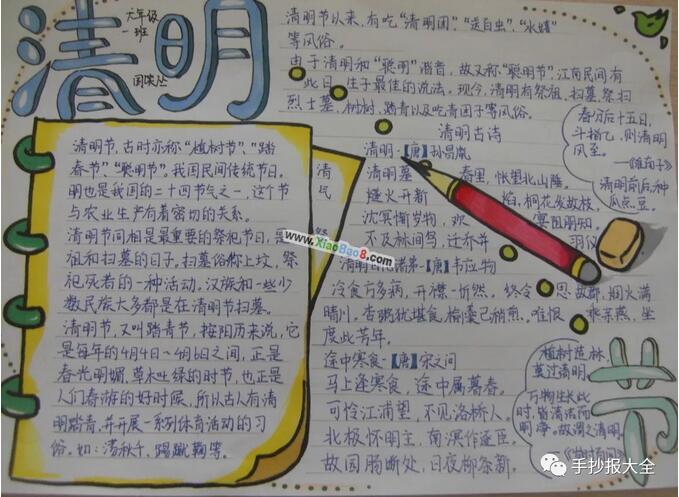 清明
六年级
一班
清明节以来,有吃"清明团","送百虫","水嬉"
等风俗。
由于清明和"聪明"谐音,故又称"聪明节",江南民间有
此日 生于最佳的流法。现今,清明有祭祖、扫墓、祭扫
烈士墓、树树、踏青以及吃青团子等风俗。
清明古诗
清明·【唐】孙昌胤
清明暮 春里,怅望北山陲。
燧火开新 焰,桐花发故枝。
沈冥惭岁物,欢 宴阻朋知。
不及林间鸟,迁乔并 羽仪
【唐】韦应物
冷食方多病,开襟一忻然。终令 思故郡,烟火满
晴川。杏粥犹堪食,榆羹已稍煎。唯恨 乖亲燕,坐
度此芳年。
途中寒食·【唐】宋之问
马上逢寒食,途中属暮春。
可怜江浦望,不见洛桥人。
北极怀明主,南溟作逐臣。
故园肠断处,日夜柳条新。
清明节,古时亦称"植树节"、"踏
春节"、"聪明节"。我国民间传统节日。
明也是我国的二十四节气之一,这个节
与农业生产有着密切的关系。
清明节间相是最重要的祭祀节日,是
祖和扫墓的日子。扫墓俗称上坟,祭
祀死者的一种活动,汉族和一些少
数民族大多都是在清明节扫墓。
清明节,又叫踏青节,按阳历来说,它
是每年的4月4日~4月6日之间,正是
春光明媚,草木吐绿的时节,也正是
人们春游的好时候,所以古人有清
明踏青,并开展一系列体育活动的习
俗。如:荡秋千,踢蹴鞠等。
清
民
祭
春分后十五日,
斗指乙,则清明
风至。
清明前后,种
瓜点豆。
植树造林,
莫过清明。
万物生长此
时,皆清洁而
明净。故谓之清明。
节
www.XiaoBao8.com
手抄报大全